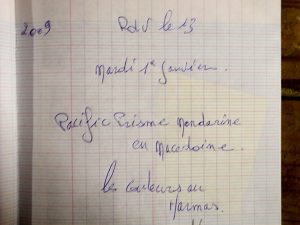 2009
RdV le 13
Mardi 1er Janvier.
Pacific Prisme Mandarine
en Macedoine.
les couleurs au
Harmas.